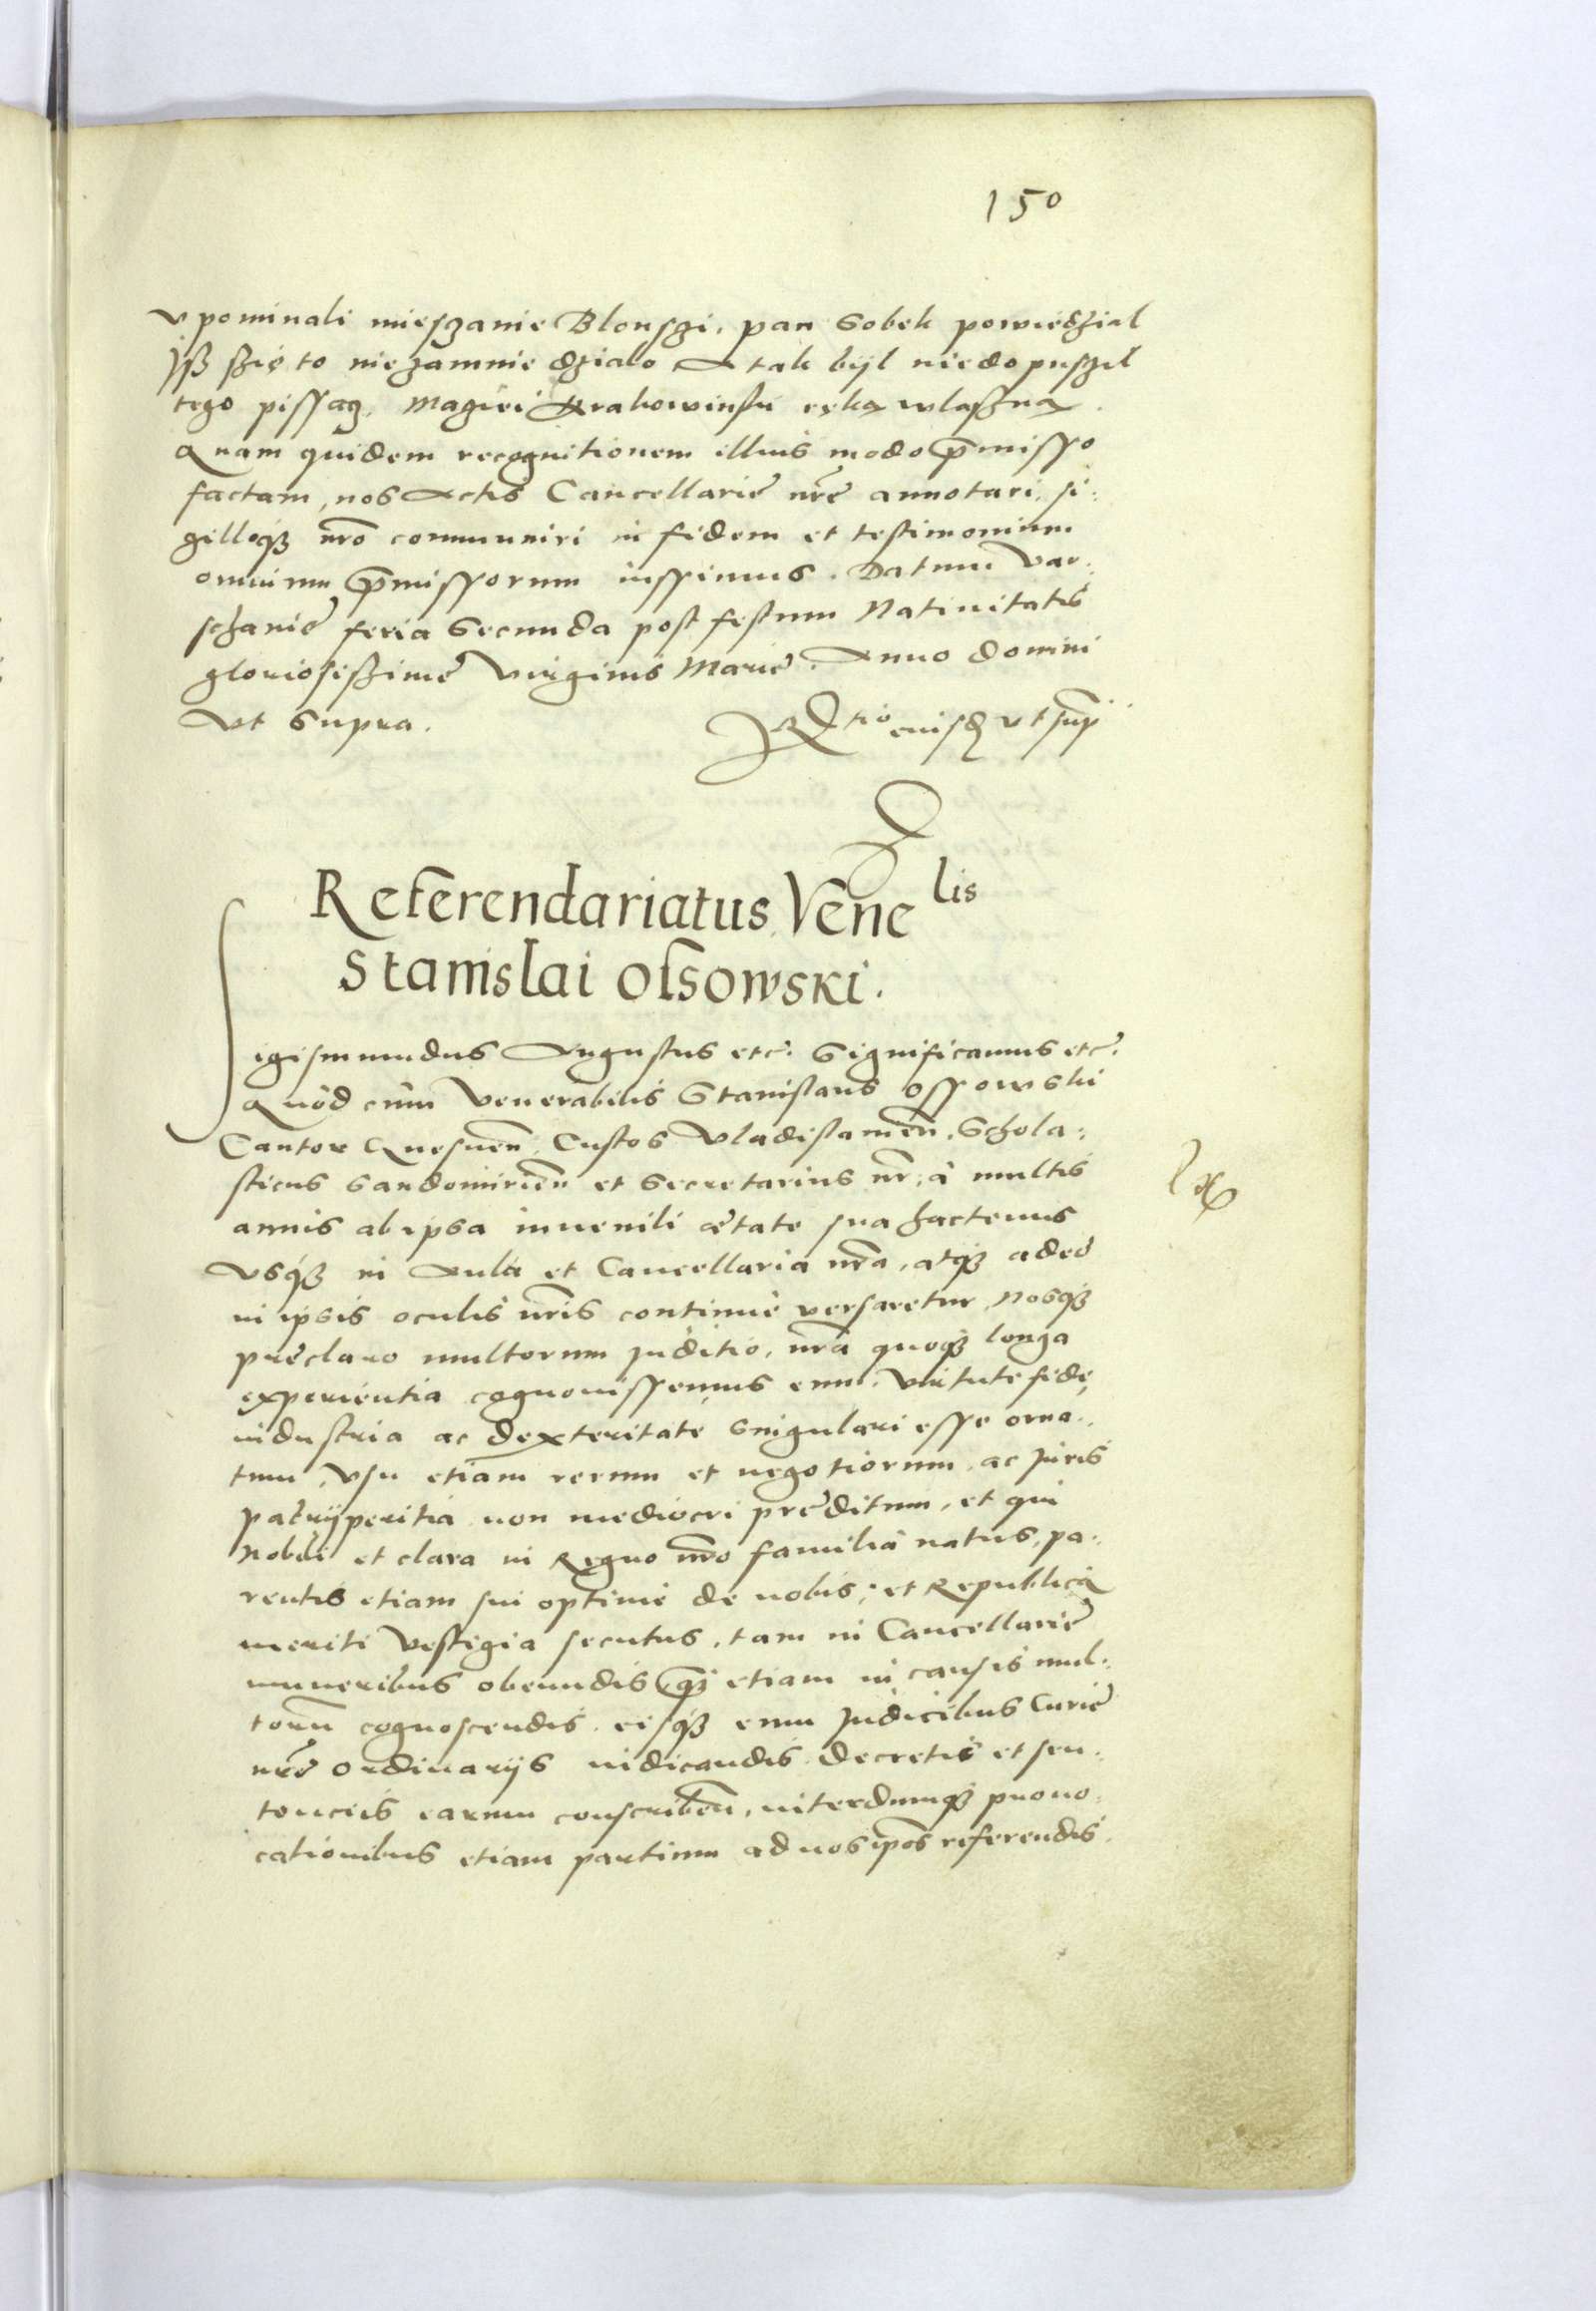 150
vpominali mieſzanie Blonſzi. pan Sobek powiedzial
Jſß ſzię to niezamnie dzialo A tak byl niedopuſzil
tego piſſacz. Macziei Krakowinſki ręką wlaſzną.
Quam quidem recognitionem illius modo p̄miſſo
factam, nos Actis Cancellarie nr̄e annotari, ſi:
gilloqȝ nr̄o communiri in fidem et testimonium
omnium p̄miſſorum iuſſimus. Datum Var:
ſchavie feria Secunda poſt feſtum Natiuitatis
glorioſiſßime Virginis Marie. Anno domini
Vt Supra.
Rtio cuiſd vt ſup̄
Referendariatus Vene lis
Stanislai oſsowski.
Sigiſmundus Auguſtus etc̄. Significamus etc̄.
Quòd cùm Venerabilis Staniſlaus Oſſowski
Cantor Gneſnen̄, Cuſtos Vladiſlauien̄, Schola:
ſticus Sandomirien̄ et Secretarius nr̄, à multis
annis ab ipsa iuuenili ætate ſua hactenus
Vsqȝ in Aula et Cancellaria nr̄a, atqȝ adeo
in ipsis oculis nr̄is continuè verſaretur, Nosqȝ
preclaro multorum Juditio, nr̄a quoqȝ longa
experientia cognouiſſemus eum. Virtute fide,
induſtria ac dexteritate Singulari eſſe orna:
tum, Vſu etiam rerum et negotiorum, ac Juris
patrij peritia non mediocri preditum, et qui
Nobili et clara in Regno nr̄o familia natus, pa:
rentis etiam ſui optime de nobis, et Republica
meriti Veſtigia ſecutus, tam in Cancellarie
muneribus obeundis qȝ etiam in cauſis mul:
torū cognoſcendis. eiſqȝ cum Judicibus Curie
nr̄e Ordinarijs iudicandis. Decretis et ſen:
tenciis earum conſcriben̄, interdumqȝ prouo:
cationibus etiam partium ad nos ip̄os referendis.